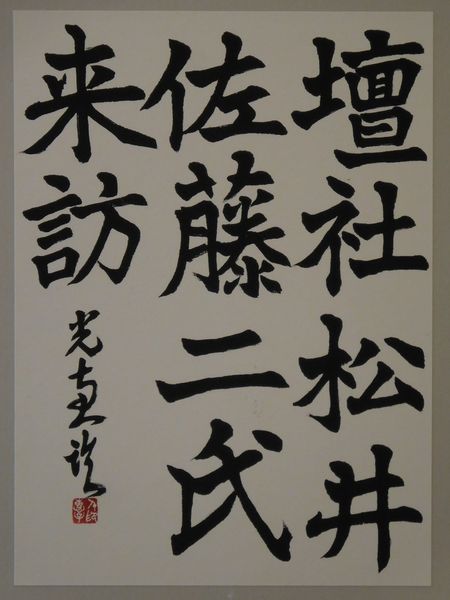 壇社松井
佐藤二氏
来訪
光恵